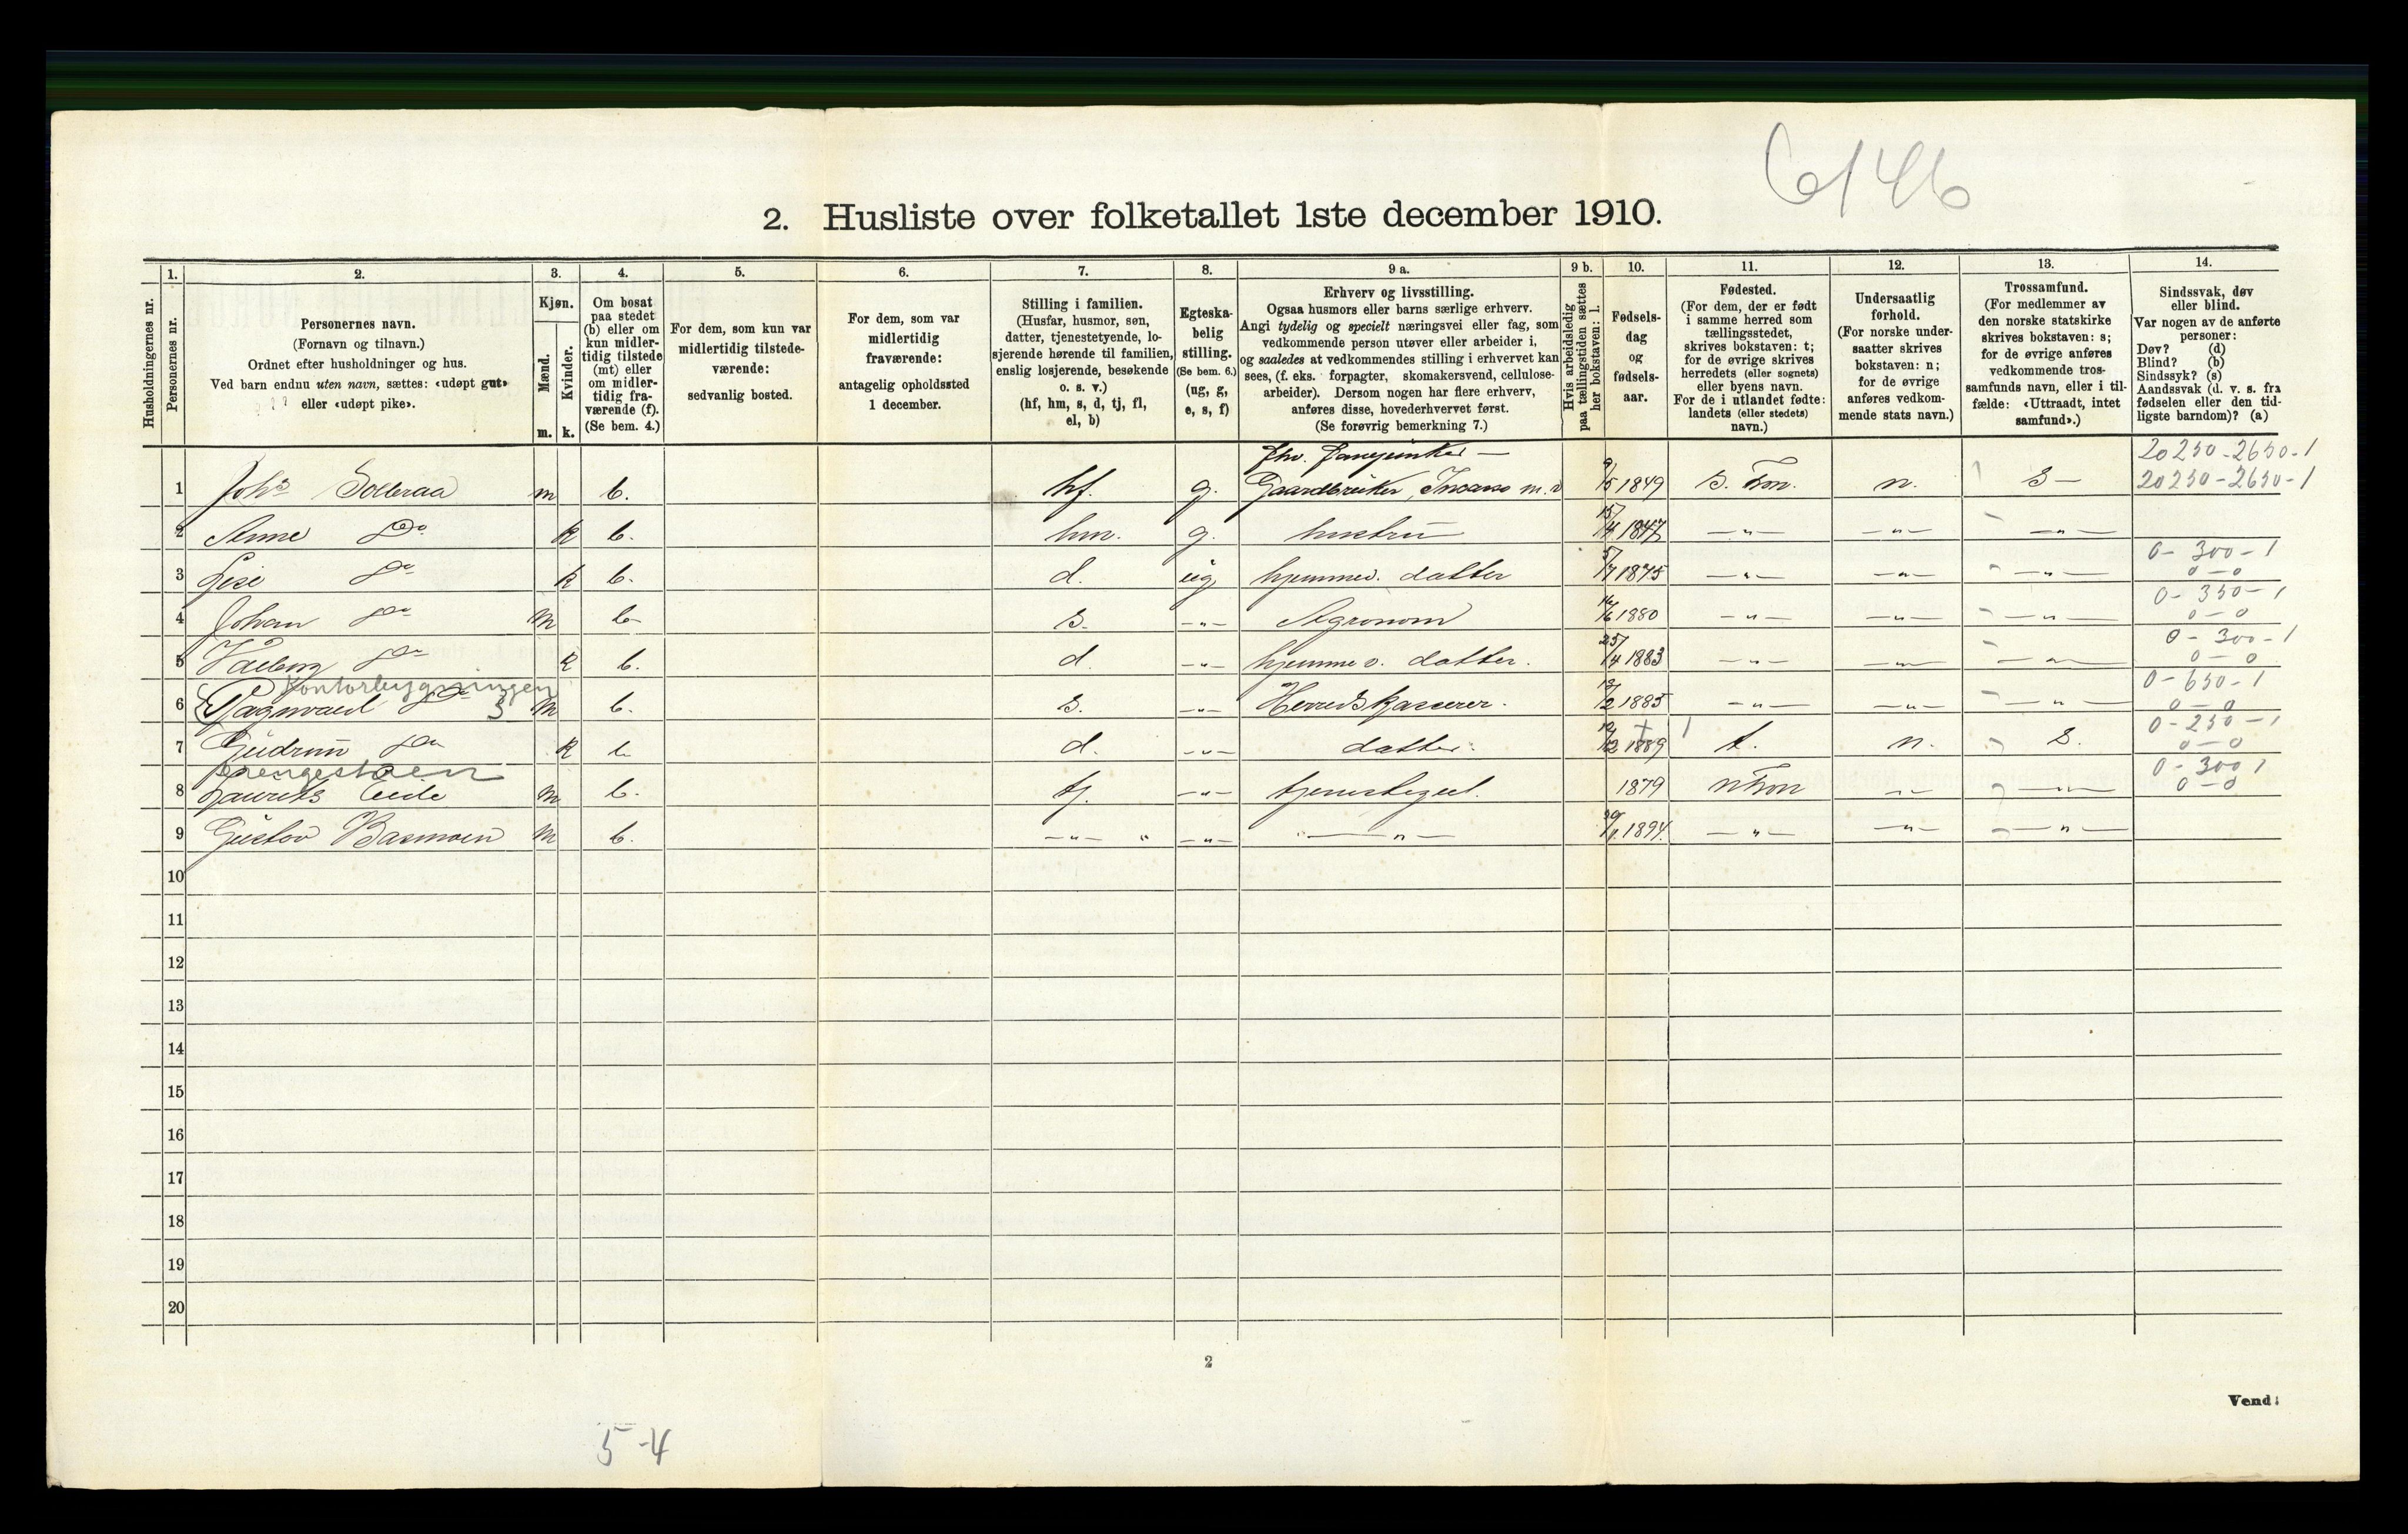 6146
2. Husliste over folketallet 1ste december 1910.
Husholdningernes nr.
1. Personernes nr.
2. Personernes navn. (Fornavn og tilnavn.) Ordnet efter husholdninger og hus. Ved barn endnu uten navn, sættes: «udøpt gut» eller «udøpt pike».
3. Kjøn. Mænd. m. Kvinder. k.
4. Om bosat paa stedet (b) eller om kun midler-tidig tilstede (mt) eller om midler-tidig fra-værende (f). (Se bem. 4.)
5. For dem, som kun var midlertidig tilstede-værende: sedvanlig bosted.
6. For dem, som var midlertidig fraværende: antagelig opholdssted 1 december.
7. Stilling i familien. (Husfar, husmor, søn, datter, tjenestetyende, lo-sjerende hørende til familien, enslig losjerende, besøkende o. s. v.) (hf, hm, s, d, tj, fl, el, b)
8. Egteska-belig stilling. (Se bem. 6.) (ug, g, e, s, f)
9 a. Erhverv og livsstilling. Ogsaa husmors eller barns særlige erhverv. Angi tydelig og specielt næringsvei eller fag, som vedkommende person utøver eller arbeider i, og saaledes at vedkommendes stilling i erhvervet kan sees, (f. eks. forpagter, skomakersvend, cellulose-arbeider). Dersom nogen har flere erhverv, anføres disse, hovederhvervet først. (Se forøvrig bemerkning 7.)
9 b. Hvis arbeidsledig paa tællingstiden sættes her bokstaven: l.
10. Fødsels-dag og fødsels-aar.
11. Fødested. (For dem, der er født i samme herred som tællingsstedet, skrives bokstaven: t; for de øvrige skrives herredets (eller sognets) eller byens navn. For de i utlandet fødte: landets (eller stedets) navn.)
12. Undersaatlig forhold. (For norske under-saatter skrives bokstaven: n; for de øvrige anføres vedkom-mende stats navn.)
13. Trossamfund. (For medlemmer av den norske statskirke skrives bokstaven: s; for de øvrige anføres vedkommende tros-samfunds navn, eller i til-fælde: «Uttraadt, intet samfund».)
14. Sindssvak, døv eller blind. Var nogen av de anførte personer: Døv? (d) Blind? (b) Sindssyk? (s) Aandssvak (d. v. s. fra fødselen eller den tid-ligste barndom)? (a)
20250-2650-1
1 Johs Solberaa m b. hf. g. Gaardbruker, m. v 9/5 1849 n. S — 20250-2650-1
2 Anne Do k b. hm. g. hustru 15/4 1847 —"— —"— —"—
0- 300-1
3 Lise Do k b. d. ug hjemmev. datter 5/7 1875 —"— —"— —"— 0-0
0-350-1
4 Johan Do m b- s. —"— Agronom 1880 —"— —"— —"— 0-0
0-300-1
5 Valborg Do k b. d. —"— hjemmev. datter. 25/4 1883 —"— —"— —"— 0-0
Kontorbygningen
0-650-1
6 Ragnvald Do 3 m b. s. —"— Herredskasserer. 1885 —"— —"— —"— 0-0
0-250-1
7 Gudrun Do k b d. —"— datter. 12/12 1889 t. n. S. 0-0
0-300 1
8 Laurits m b. tj. —"— 1879 —"— —"— 0-0
9 Gustav Basmoen m b. —"— " —"— —"— 1894. —"— —"— —"—
10
11
12
13
14
15
16
17
18
19
20
2
Vend!
5-4